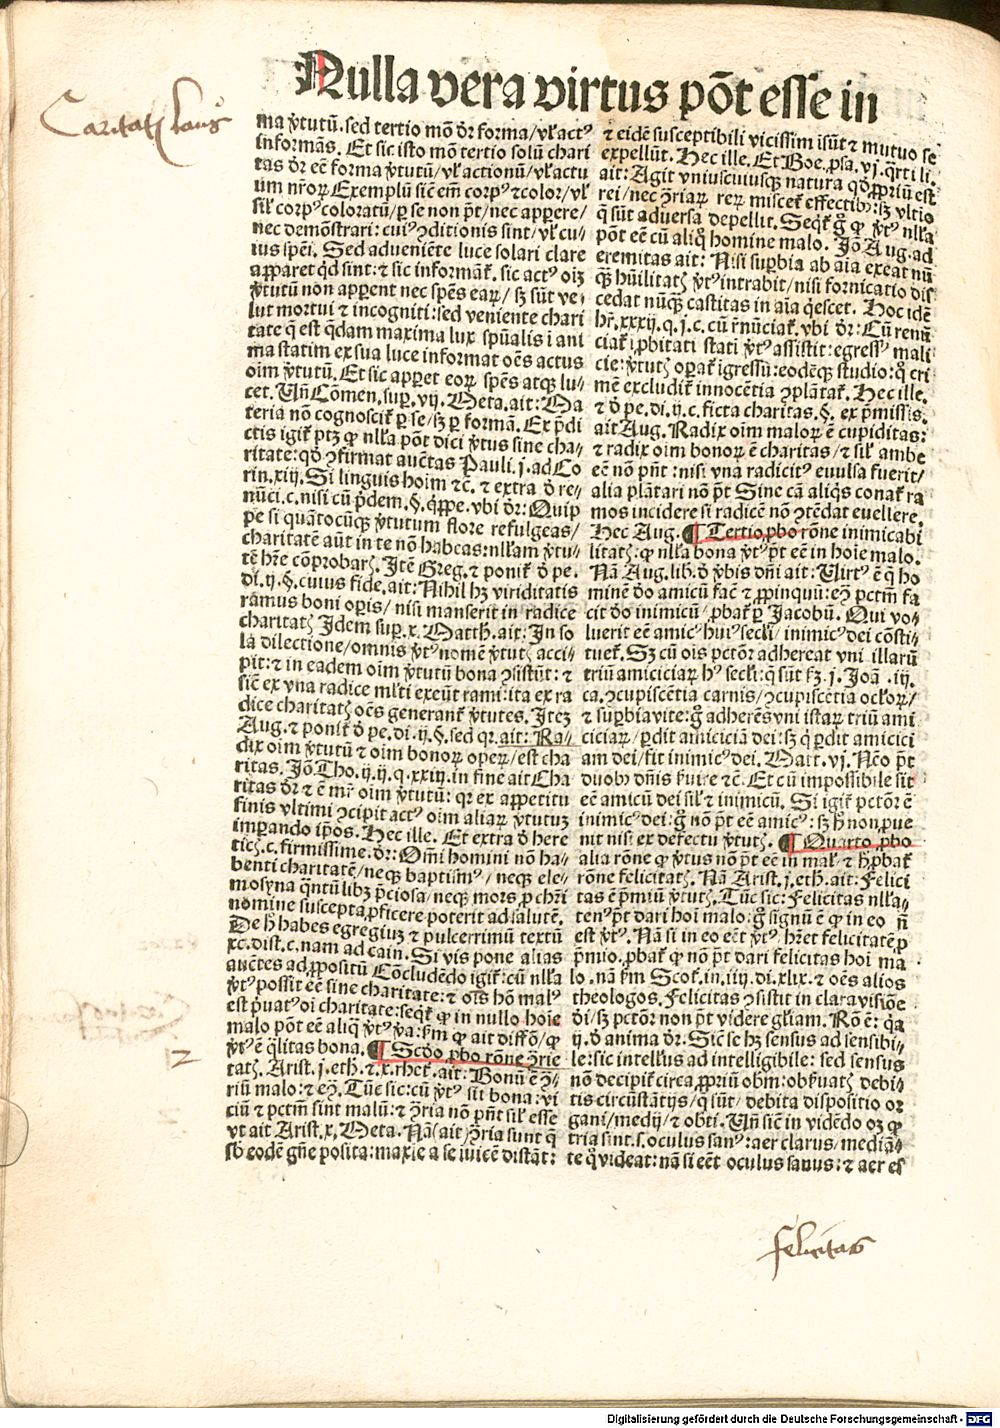 Nulla vera virtus põt esse in
Caritatis laus
ma ꝟtutũ. sed tertio mõ dr̃ forma/ vl̃ actꝰ
informãs. Et sic isto mõ tertio solũ chari
tas dr̃ eẽ forma ꝟtutũ/ vl̃ actionũ/ vl̃ actu
um nr̃oꝝ Exemplũ sicẽ em̃ corpꝰ ⁊ color/ vl̃
sil̃ corpꝰ coloratũ/ ꝑ se non p̃t/ nec apꝑere/
nec demõstrari: cuiꝰ ꝯditionis sint/ vl̃ cu⸗
ius spẽi. Sed adveniẽte luce solari clare
apparet qd̃ sint: ⁊ sic informat̃. sic actꝰ oĩz
ꝟtutũ non apꝑent nec spẽs eaꝝ/ sꝫ sũt ve⸗
lut mortui ⁊ incogniti: sed veniente chari
tate q̃ est q̃dam maxima lux spũalis ĩ ani
ma statim ex sua luce informat oẽs actus
oim ꝟtutũ. Et sic apꝑet eoꝝ spẽs atqꝫ lu⸗
cet. Vñ Cõmen. suꝑ. vij. Meta. ait: Ma
teria nõ cognoscit̃ ꝑ se/ sꝫ ꝑ formã. Ex p̃di
ctis igit̃ ptꝫ ꝙ nll̃a põt dici ꝟtus sine cha⸗
ritate: qd̃ ꝯfirmat auc̃tas Pauli. j. ad Co
rin. xiij. Si linguis hoim ⁊c. ⁊ extra d̾ re⸗
nũci. c. nisi cũ p̃dem. §. q̃ppe. vbi dr̃: Quip
pe si quãtocũqꝫ ꝟtutum flore refulgeas/
charitatẽ aũt in te nõ habeas: nll̃am ꝟtu⸗
tẽ hr̃e cõprobar̃. Itẽ Greg. ⁊ ponit̃ d̾ pe.
di. ij. §. cuius fide. ait: Nihil hꝫ viriditatis
ramus boni oꝑis/ nisi manserit in radice
charitatis Idem suꝑ. x. Matth. ait: In so
la dilectione/ omnis ꝟtꝰ nomẽ ꝟtutis acci⸗
pit: ⁊ in eadem oim ꝟtutũ bona ꝯsistũt: ⁊
sicẽ ex vna radice ml̃ti exeũt rami: ita ex ra
dice charitatis oẽs generant̃ ꝟtutes. Iteꝫ
Aug. ⁊ ponit̃ d̾ pe. di. ij. §. sed qr. ait: Ra⸗
dix oim ꝟtutũ ⁊ oim bonoꝝ opeꝝ/ est cha
ritas. Jõ Tho. ij. ij. q. xxiij. in fine ait Cha
ritas dr̃ ⁊ ẽ mr̃ oim ꝟtutũ: qr ex appetitu
finis vltimi ꝯcipit actꝰ oim aliaꝝ ꝟtutuꝫ
imꝑando ip̃os. Hec ille. Et extra d̾ here
tic̃. c. firmissime. dr̃: Om̃i homini nõ ha⸗
benti charitatẽ/ neqꝫ baptismꝰ/ neqꝫ ele⸗
mosyna q̃ntũ libꝫ p̃ciosa/ neqꝫ mors ꝓ chr̃i
nomine suscepta/ ꝓficere poterit ad salutẽ.
De h̃ habes egregiuꝫ ⁊ pulcerrimũ textũ
xc. dist. c. nam ad cain. Si vis pone alias
auc̃tes ad ꝓpositũ Cõcludẽdo igit̃: cũ nll̃a
ꝟtꝰ possit eẽ sine charitate: ⁊ oĩs hõ malꝰ
est p̃uatꝰ oĩ charitate: seqt̃ ꝙ in nullo hoĩe
malo põt eẽ aliq̃ ꝟtꝰ ꝟa: km̃ ꝙ ait diffõ/ ꝙ
ꝟtꝰ ẽ q̃litas bona. ¶ Scd̃o ꝓbo rõne ꝯrie
tatis. Arist. j. eth. ⁊. x. rhet̃. ait: Bonũ ẽ ꝯ⸗
riũ malo: ⁊ eꝯ. Tũc sic: cũ ꝟtꝰ sit bona: vi
ciũ ⁊ pctm̃ sint malũ: ⁊ ꝯria nõ pñt sil̃ esse
vt ait Arist. x. Meta. Nã/ ait/ ꝯria sunt q̃
sb̾ eodẽ gñe posita: maxie a se ĩuicẽ distãt:
12
⁊ eidẽ susceptibili vicissim ĩsũt ⁊ mutuo se
expellũt. Hec ille. Et Boe. ꝓsa. vj. q̃rti li.
ait: Agit vniuscuiusqꝫ natura qd̾ ꝓpriũ est
rei/ nec ꝯriaꝝ reꝝ miscet̃ effectibꝰ: sꝫ vltio
q̃ sũt aduersa depellit. Seqt̃ g̃ ꝙ ꝟtꝰ nll̃a
põt eẽ cũ aliq̃ homine malo. Jõ Aug. ad
eremitas ait: Nisi suꝑbia ab aĩa exeat nũ
qꝫ hũilitatis ꝟtꝰ intrabit/ nisi fornicatio dis
cedat nũqꝫ castitas in aĩa q̃escet. Hoc idẽ
hr̃. xxxij. q. j. c. cũ r̃nũciat̃. vbi dr̃: Cũ renũ
ciat̃ ĩꝓbitati stati ꝟtꝰ assistit: egressꝰ mali
cie: ꝟtutis oꝑat̃ igressũ: eodẽqꝫ studio: q̾ cri
mẽ excludit̃ innocẽtia ꝯplãtat̃. Hec ille.
⁊ d̾ pe. di. ij. c. ficta charitas. §. ex p̃missis.
ait Aug. Radix oim maloꝝ ẽ cupiditas:
⁊ radix oim bonoꝝ ẽ charitas/ ⁊ sil̃ ambe
eẽ nõ pñt: nisi vna radicitꝰ euulsa fuerit/
alia plãtari nõ p̃t Sine cã aliq̃s conat̃ ra
mos incidere si radicẽ nõ ꝯtẽdat euellere.
Hec Aug. ¶ Tertio ꝓbo rõne inimicabi
litatis: ꝙ nll̃a bona ꝟtꝰ p̃t eẽ in hoĩe malo.
Nã Aug. lib. d̾ ꝟbis dñi ait: Virtꝰ ẽ q̃ ho
minẽ d̾o amicũ fac̃ ⁊ ꝓpinquũ: eꝯ pctm̃ fa
cit d̾o inimicũ/ ꝓbat̃ ꝑ Jacobũ. Qui vo⸗
luerit eẽ amicꝰ huiꝰ secl̃i/ inimicꝰ dei cõsti⸗
tuet̃. Sꝫ cũ oĩs pctõr adhereat vni illarũ
triũ amiciciaꝝ hꝰ secl̃i: q̃ sũt sꝫ. j. Joã. iij.
ca. ꝯcupiscẽtia carnis/ ꝯcupiscẽtia ocl̃oꝝ/
⁊ suꝑbia vite: g̃ adherẽs vni istaꝝ triũ ami
ciciaꝝ/ ꝑdit amiciciã dei: sꝫ q̃ ꝑdit amicici
am dei/ fit inimicꝰ dei. Matt. vj. Nẽo p̃t
duobꝰ dñis ẜuire ⁊c. Et cũ impossibile sit
eẽ amicũ dei sil̃ ⁊ inimicũ. Si igit̃ pctõr ẽ
inimicꝰ dei: g̃ nõ p̃t eẽ amicꝰ: sꝫ h̃ non ꝓue
nit nisi ex defectu ꝟtutis. ¶ Quarto ꝓbo
alia rõne ꝙ ꝟtus nõ p̃t eẽ in mal̃ ⁊ h̃ ꝓbat̃
rõne felicitatis. Nã Arist. j. eth. ait: Felici
tas ẽ p̃miũ ꝟtutis. Tũc sic: Felicitas nll̃a⸗
tenꝰ p̃t dari hoĩ malo: g̃ signũ ẽ ꝙ in eo ñ
est ꝟtꝰ. Nã si in eo eẽt ꝟtꝰ/ hr̃et felicitatẽ ꝓ
p̃mio. ꝓbat̃ ꝙ nõ p̃t dari felicitas hoĩ ma
lo. nã km̃ Scot̃. in. iiij. di. xlix. ⁊ oẽs alios
theologos. Felicitas ꝯsistit in clara visiõe
dei/ sꝫ pctõr non p̃t videre gl̃iam. Rõ ẽ: q̃a
ij. d̾ anima dr̃. Sicẽ se hꝫ sensus ad sensibi⸗
le: sic intell̃us ad intelligibile: sed sensus
nõ decipit̃ circa ꝓpriũ obm̃: obẜuatis debi⸗
tis circũstãtijs/ q̃ sũt/ debita dispositio or
gani/ medij/ ⁊ obti. Vñ sicẽ in vidẽdo oꝫ ꝙ
tria sint. s. oculus sanꝰ: aer clarus/ mediã⸗
te q̾ videat: nã si eẽt oculus sanus: ⁊ aer es
felicitas
Digitalisierung gefördert durch die Deutsche Forschungsgemeinschaft - DFG